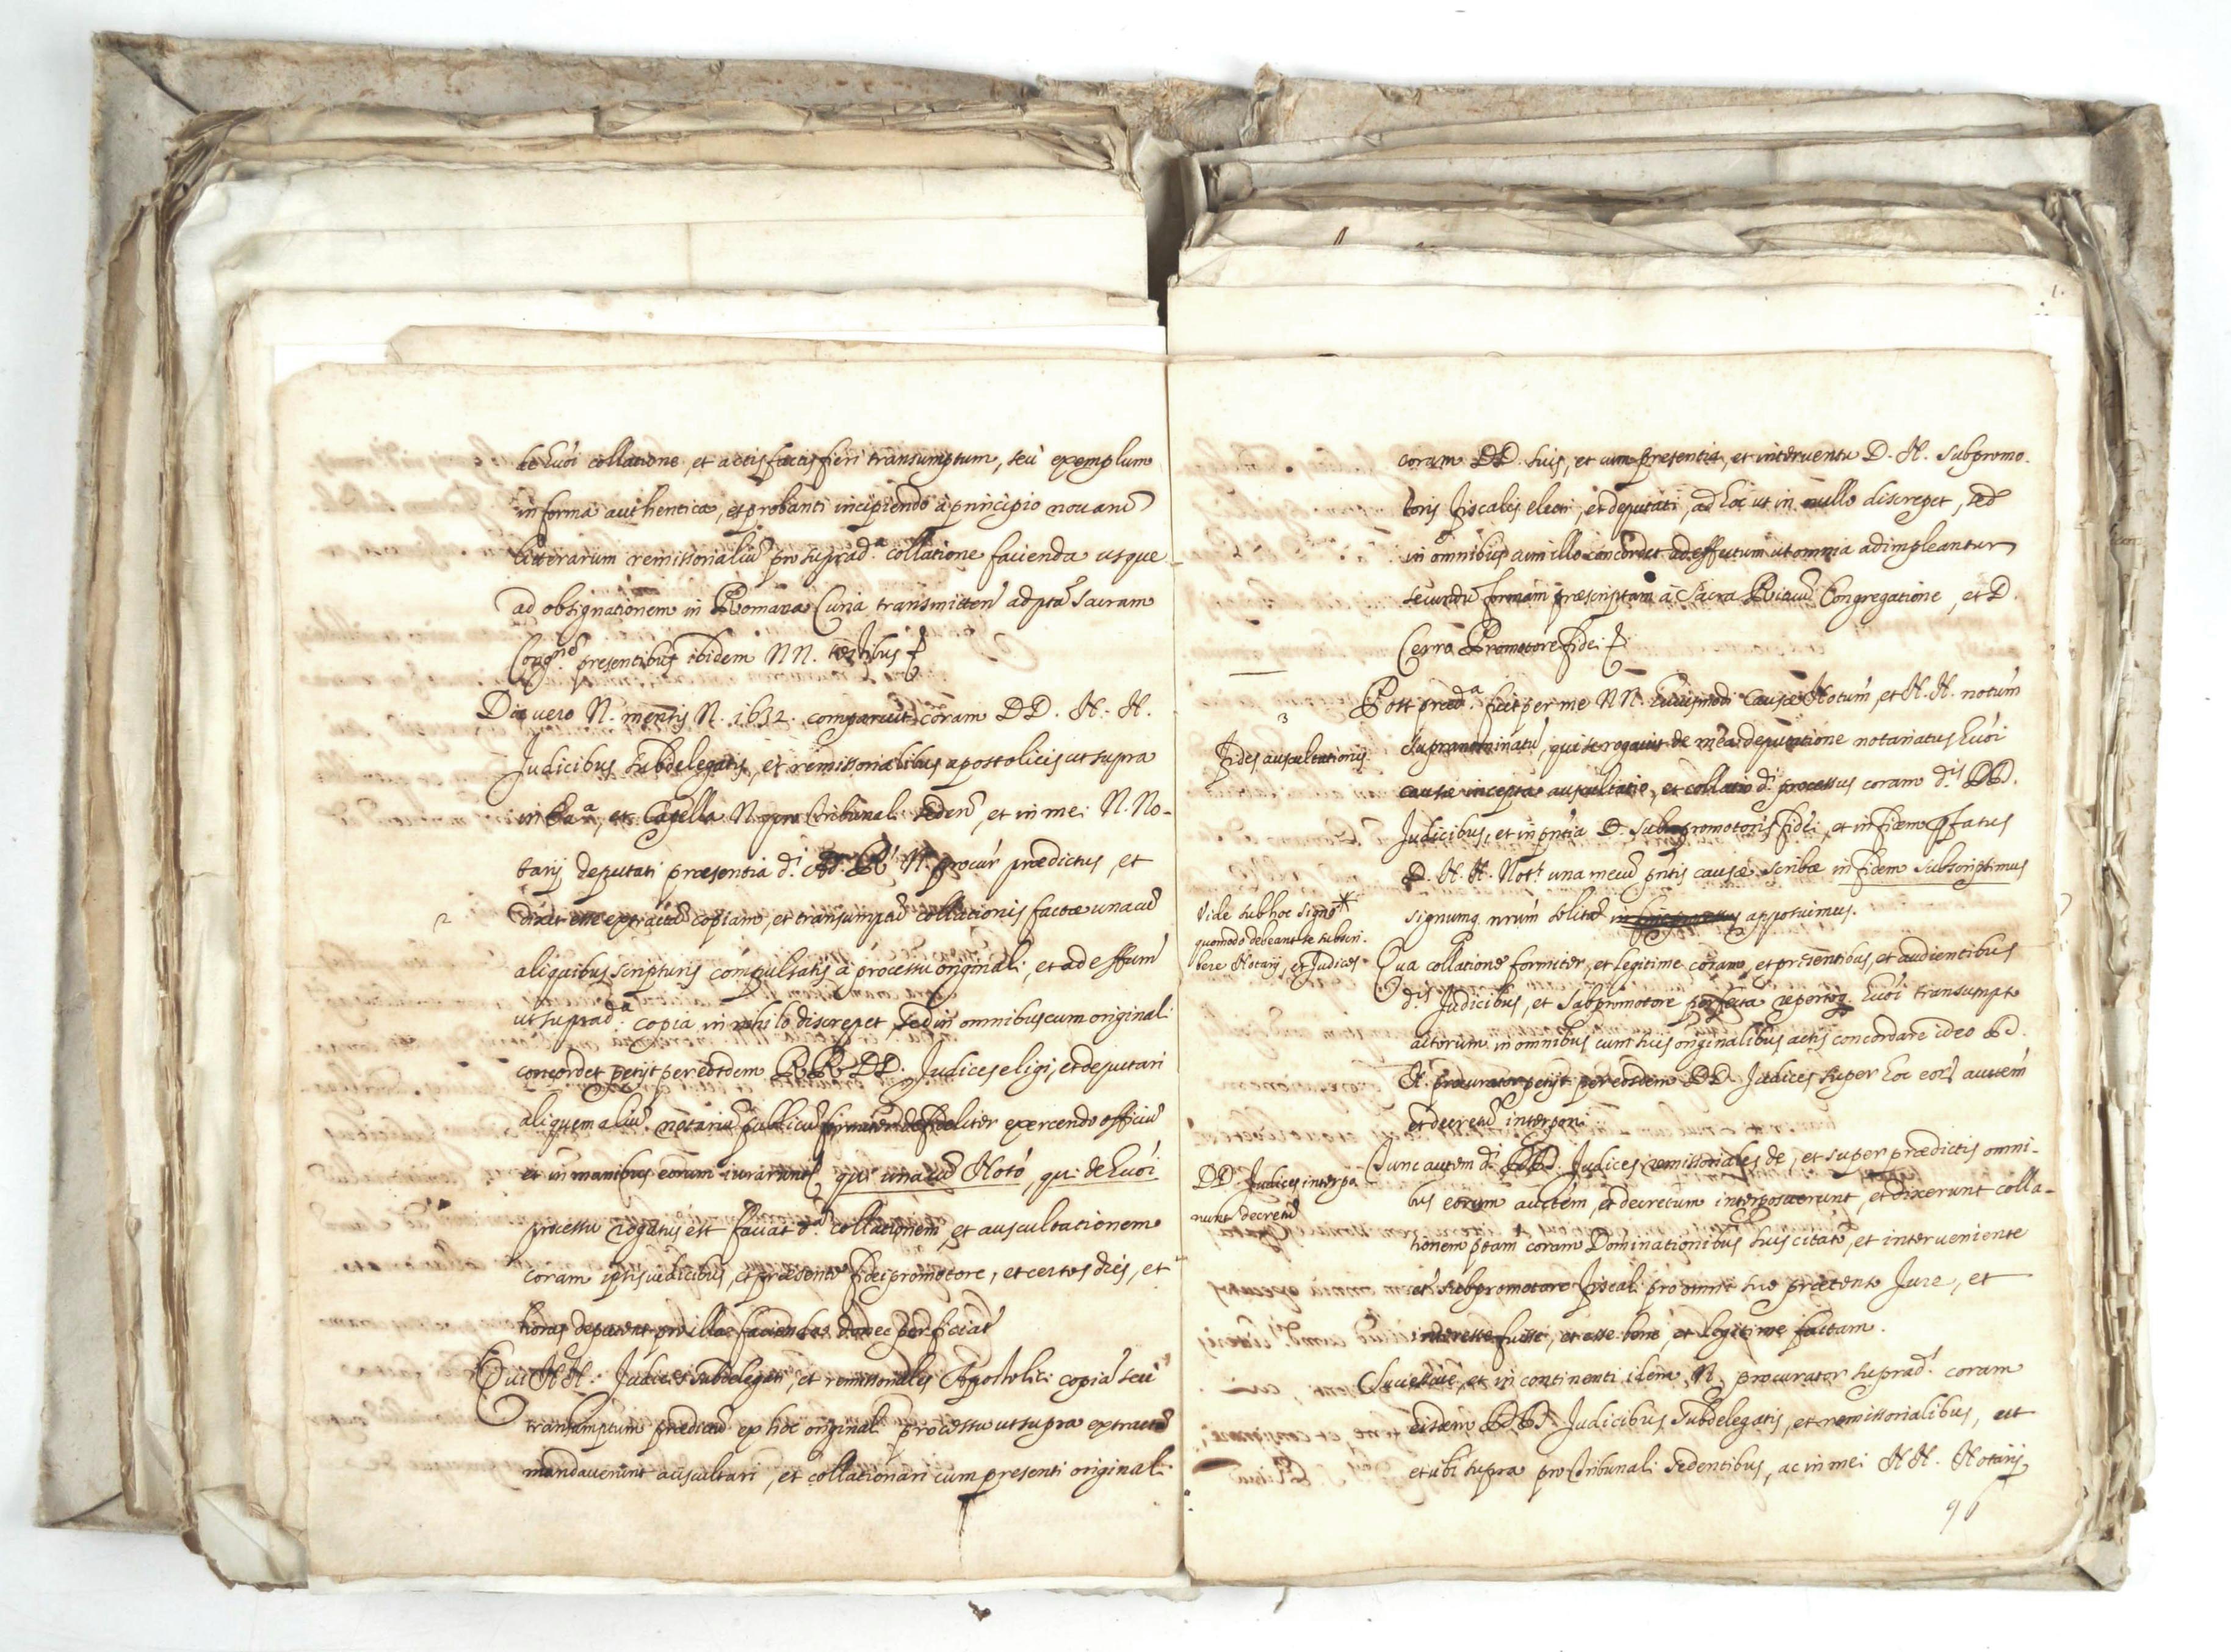 de huiõi collatione, et actis factis fieri transumptum, seù exemplum
in forma authentica, et probanti incipiendo à principio novarũ
litterarum remissorialiũ pro suprad.ᵃ collatione facienda usque
ad obsignationem in Romana Curia transmitten̄ ad p̄tã Sacram
Congⁿᵉ. presentibus ibidem NN. testibus
Die vero N. mensis N. 1632. comparuit coram DD. N. N.
Judicibus subdelegatis, et remissorialibus apostolicis ut supra
in Ecc.ᵃ, et Capella N. pro tribunali seden̄, et in mei N. No-
tarij deputati præsentia d.ⁱ Ad. R.ⁱ N. procur̄ prædictus, et
2
dixit esse extractã copiam, et transumptũ collationis factæ unacũ
aliquibus scripturis compulsatis à processu originali, et ad effum̄
ut suprad.ᵃ copia in nihilo discrepet, sed in omnibus cum originali
concordet petijt per eosdem RR DD. Judices eligi, et deputari
aliquem aliũ notariũ publicũ fideliter exercendo officiũ
et in manibus eorum iurarunt, qui unacũ Notõ, qui de huiõi
processu rogatus est faciat d.ᵃᵐ collationem, et auscultationem
coram ipsis iudicibus, et præsente fidei promotore, et certos dies, et
horas deputent pro illa facienda donec perficiat̄
Qui NN. Judices subdelegati, et remissoriales Apostolici copiã seù
transumptum prædictũ ex hoc originali processu ut supra extractũ
mandaverunt auscultari, et collationari cum presenti originali
coram DD. suis, et cum presentia, et interventu D. N. subpromo-
toris fiscalis electi, et deputati, ad hoc ut in nullo discrepet, sed
in omnibus cum illo concordet ad effectum ut omnia adimpleantur
secundũ formam præscriptam à Sacra Rituũ Congregatione, et D.
Cerro Promotore fidei
3
Fides auscultationis
Post præd.ᵃ fuit per me NN. huiusmodi causæ Notum̄, et N. N. notum̄
supranominatũ, qui se rogavit de mea deputatione notariatus huiõi
causæ incepta auscultatio, et collatio d.ⁱ processus coram d.ⁱˢ DD.
Judicibus, et in pñtia D. subpromotoris fidei, et in fidem p̄fatus
D. N. N. Not.ˢ una mecũ pñtis causæ scriba in fidem subscripsimus
signumq. nrũm solitũ apposuimus.
Vide sub hoc signo *
quomodo debeant se subscri-
bere Notarij, et Judices
Qua collatione formiter, et legitime coram, et presentibus, et audientibus
d.ⁱˢ Judicibus, et subpromotore perfecta huiõi transumpto
actorum in omnibus cum suis originalibus actis concordare ideo D.
N. procurator petijt per eosdem DD. Judices super hoc eorũ auctẽm
et decretũ interponi
DD. Judices interpo
nunt decretũ
Tunc autem d.ⁱ DD. Judices remissoriales de, et super prædictis omni-
bus eorum auctẽm, et decretum interposuerunt, et dixerunt colla-
tionem p̄tam coram Dominationibus suis citato, et interveniente
et subpromotore fiscali pro omni suo prætenso Jure, et
interesse fuisse, et esse bene, et legitime factam.
Successive, et in continenti idem N. procurator suprad.ˢ coram
eisdem DD. Judicibus subdelegatis, et remissorialibus, ut
et ubi supra pro tribunali sedentibus, ac in mei NN. Notarij
96